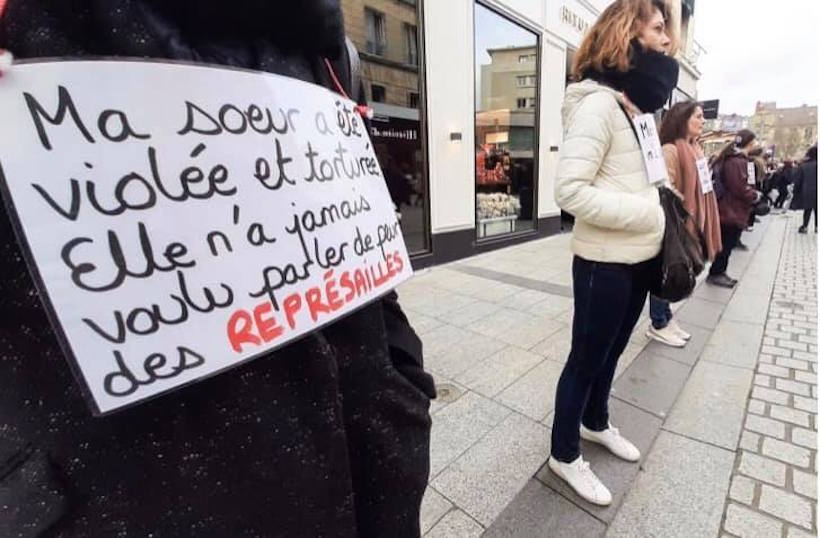 Ma soeur a été
violée et torturée.
Elle n'a jamais
voulu parler de peur
des REPRÉSAILLES